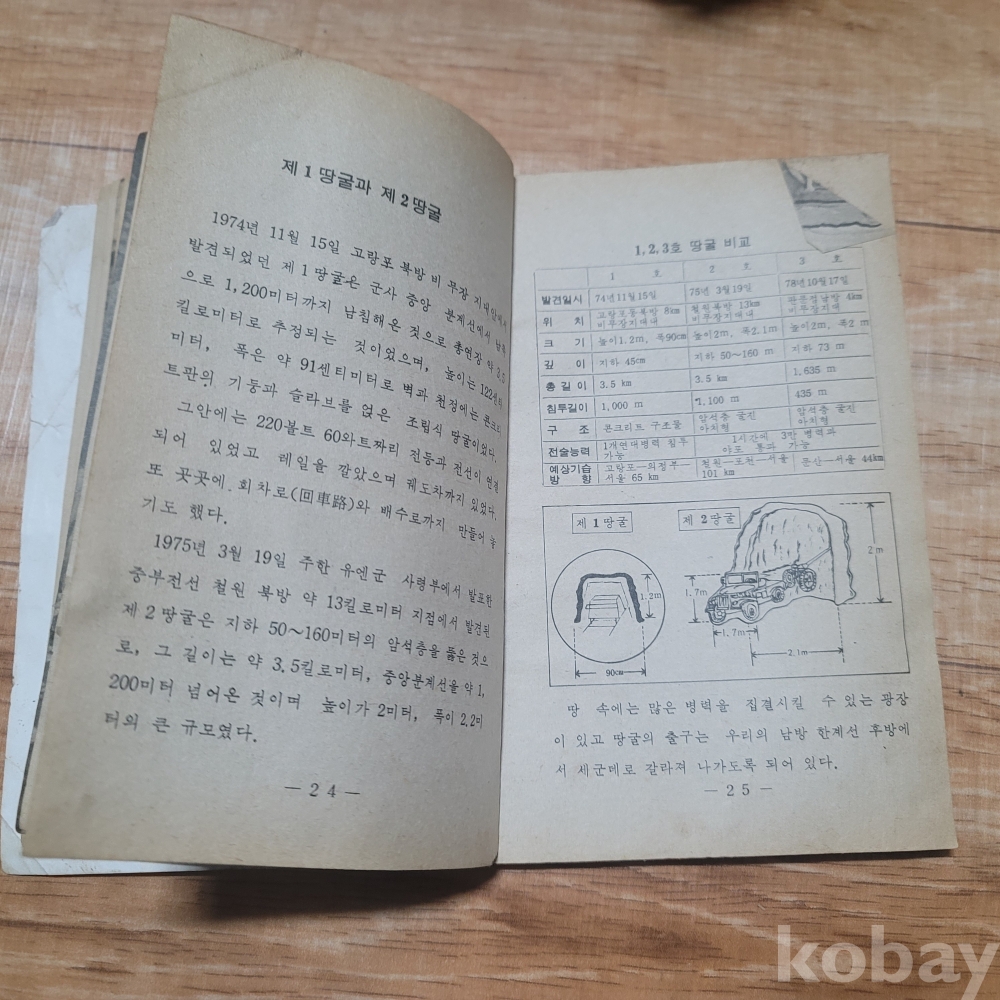 제 1 땅굴과 제 2 땅굴
1974년 11월 15일 고랑포 북방 비무장 지내안에서
발견되었던 제 1 땅굴은 군사 중앙 분계선에서 남쪽
으로 1,200미터까지 남침해온 것으로 총연장 약 3.5
킬로미터로 추정되는 것이었으며, 높이는 122센티
미터, 폭은 약 91센티미터로 벽과 천정에는 콘크리
트판의 기둥과 슬라브를 얹은 조립식 땅굴이었다.
그안에는 220볼트 60와트짜리 전등과 전선이 연결
되어 있었고 레일을 깔았으며 궤도차까지 있었다.
또 곳곳에 회차로(回車路)와 배수로까지 만들어 놓
기도 했다.
1975년 3월 19일 주한 유엔군 사령부에서 발표한
중부전선 철원 북방 약 13킬로미터 지점에서 발견된
제 2 땅굴은 지하 50~160미터의 암석층을 뚫은 것으
로, 그 길이는 약 3.5킬로미터, 중앙분계선을 약 1,
200미터 넘어온 것이며 높이가 2미터, 폭이 2.2미
터의 큰 규모였다.
— 2 4 —
1, 2, 3호 땅굴 비교
1 호 2 호 3 호
발견일시 74년11월15일 75년 3월19일 78년10월17일
위 치 고랑포동북방 8km 비무장지대내 철원북방 13km 비무장지대내 판문점남방 4km 비무장지대
크 기 높이1.2m, 폭90cm 높이2m, 폭2.1m 높이2m, 폭2 m
깊 이 지하 45cm 지하 50~160 m 지하 73 m
총 길 이 3.5 km 3.5 km 1,635 m
침투길이 1,000 m 1,100 m 435 m
구 조 콘크리트 구조물 암석층 굴진 아치형 암석층 굴진 아치형
전술능력 1개연대병력 침투 가능 1시간에 3만 병력과 야포 통과 가능
예상기습 방 향 고랑포—의정부— 서울 65 km 철원—포천—서울 101 km 문산—서울 44km
제 1 땅굴
제 2 땅굴
1.2m
90cm
1.7m
1.7m
2.1m
2m
땅 속에는 많은 병력을 집결시킬 수 있는 광장
이 있고 땅굴의 출구는 우리의 남방 한계선 후방에
서 세군데로 갈라져 나가도록 되어 있다.
— 2 5 —
kobay